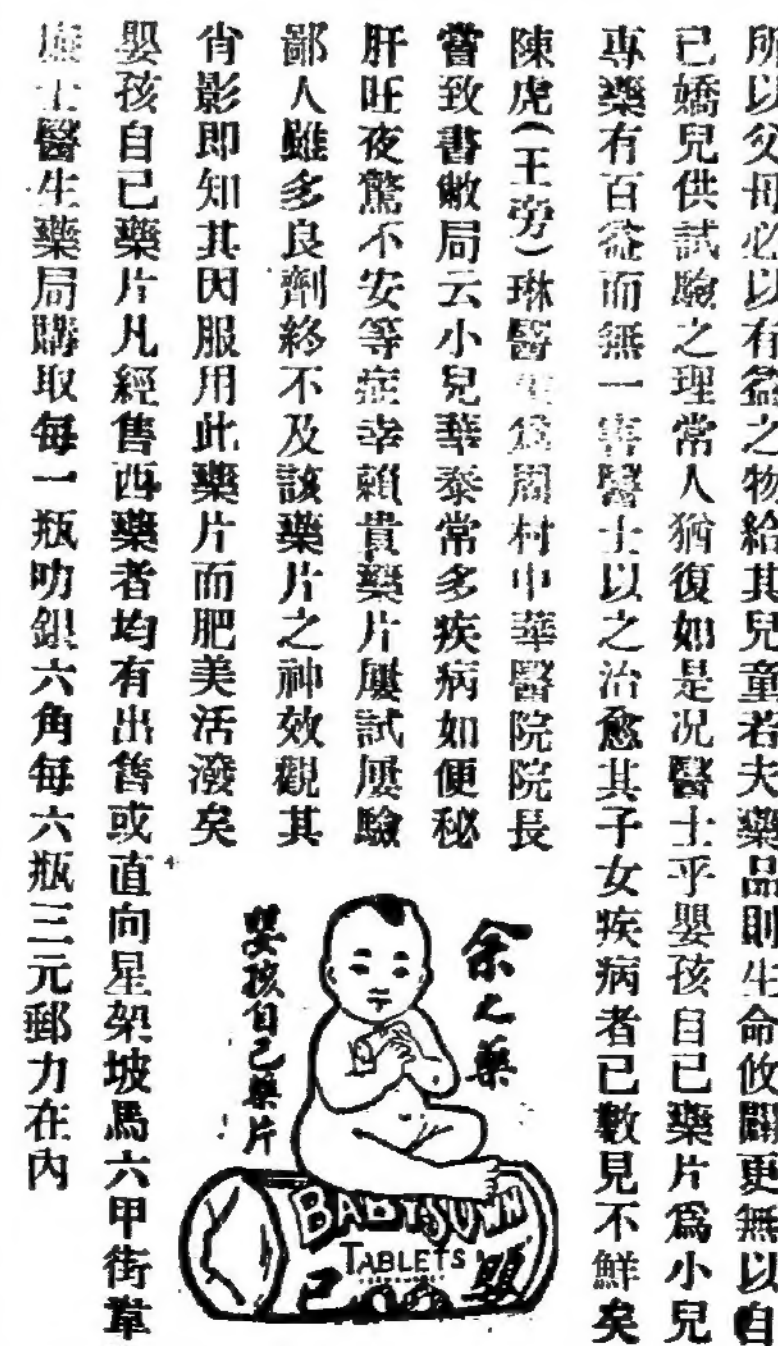 所以父母必以有益之物給其兒童若夫藥品則生命攸關更無以自
己嬌兒供試驗之理常人猶復如是况醫士乎嬰孩自己藥片爲小兒
專藥有百益而無一害醫士以之治愈其子女疾病者已數見不鮮矣
陳虎(王旁)琳醫生爲周村中華醫院院長
嘗致書敝局云小兒華泰常多疾病如便秘
肝旺夜驚不安等症幸賴貴藥片屢試屢驗
鄙人雖多良劑終不及該藥片之神效觀其
肖影即知其因服用此藥片而肥美活潑矣
嬰孩自已藥片凡經售西藥者均有出售或直向星架坡馬六甲街韋
廉士醫生藥局購取每一瓶叻銀六角每六瓶三元郵力在內
余之藥
嬰孩自己藥片
BABY'S OWN
TABLETS
己